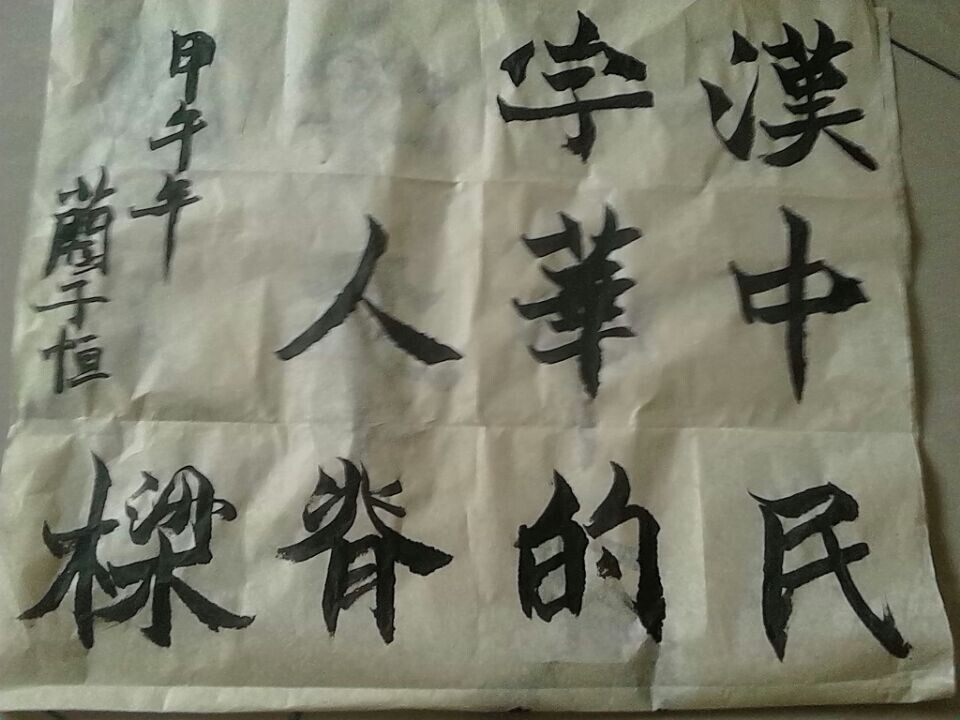 漢字
中華人
民的脊樑
甲午年
子恒